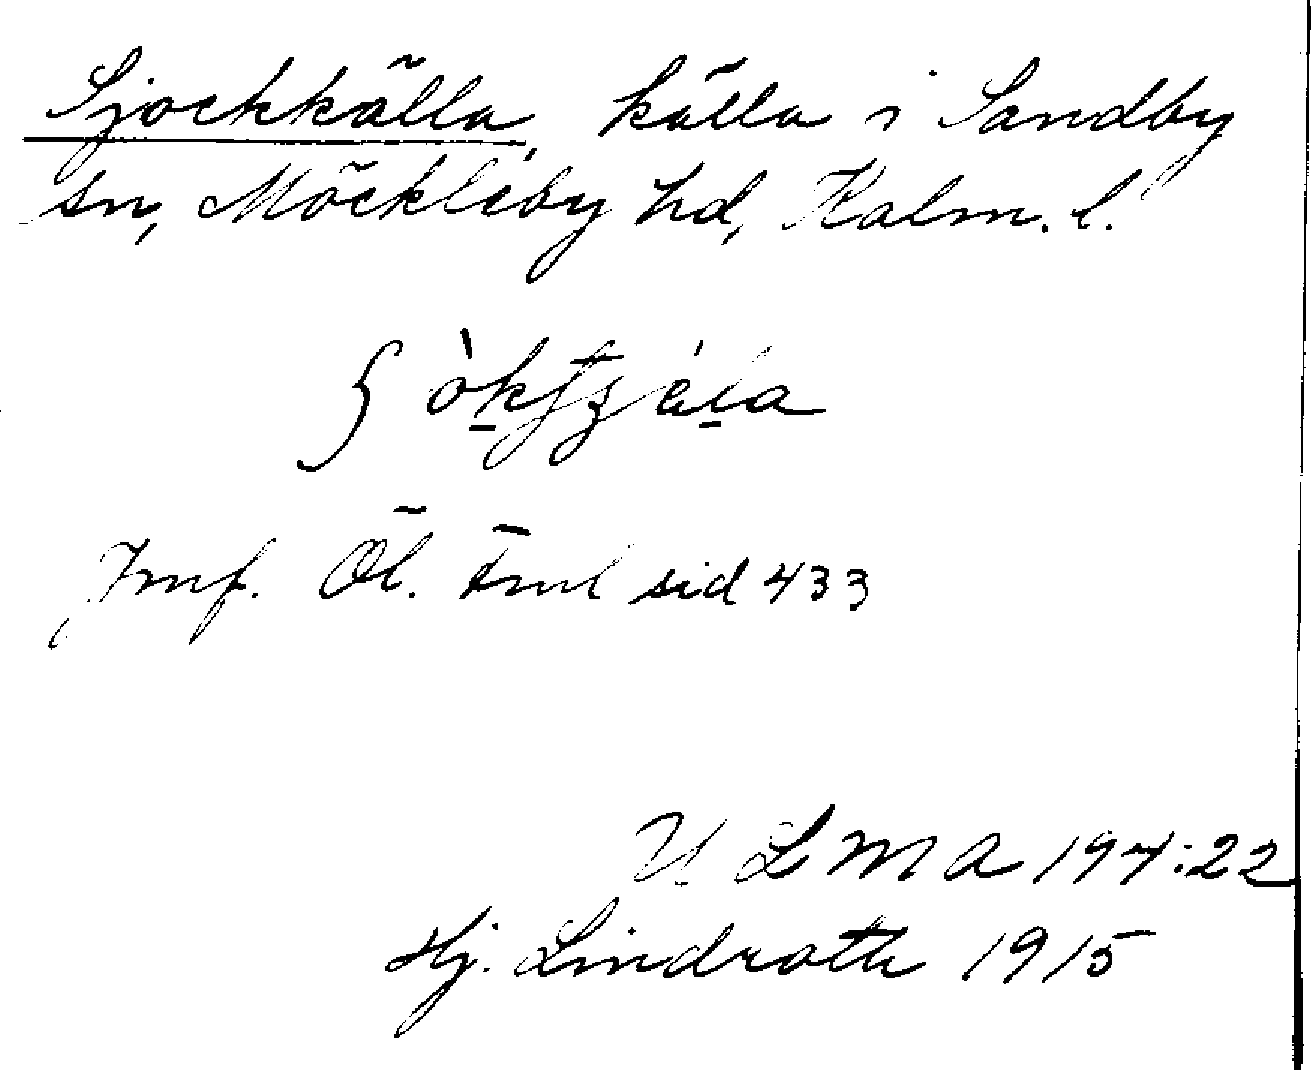 Sjockkälla, källa i Sandby
sn, Möckleby hd, Kalm. l.
Jmf. Öl. sid 433
ULMA 194:22
Hj. Lindroth 1915